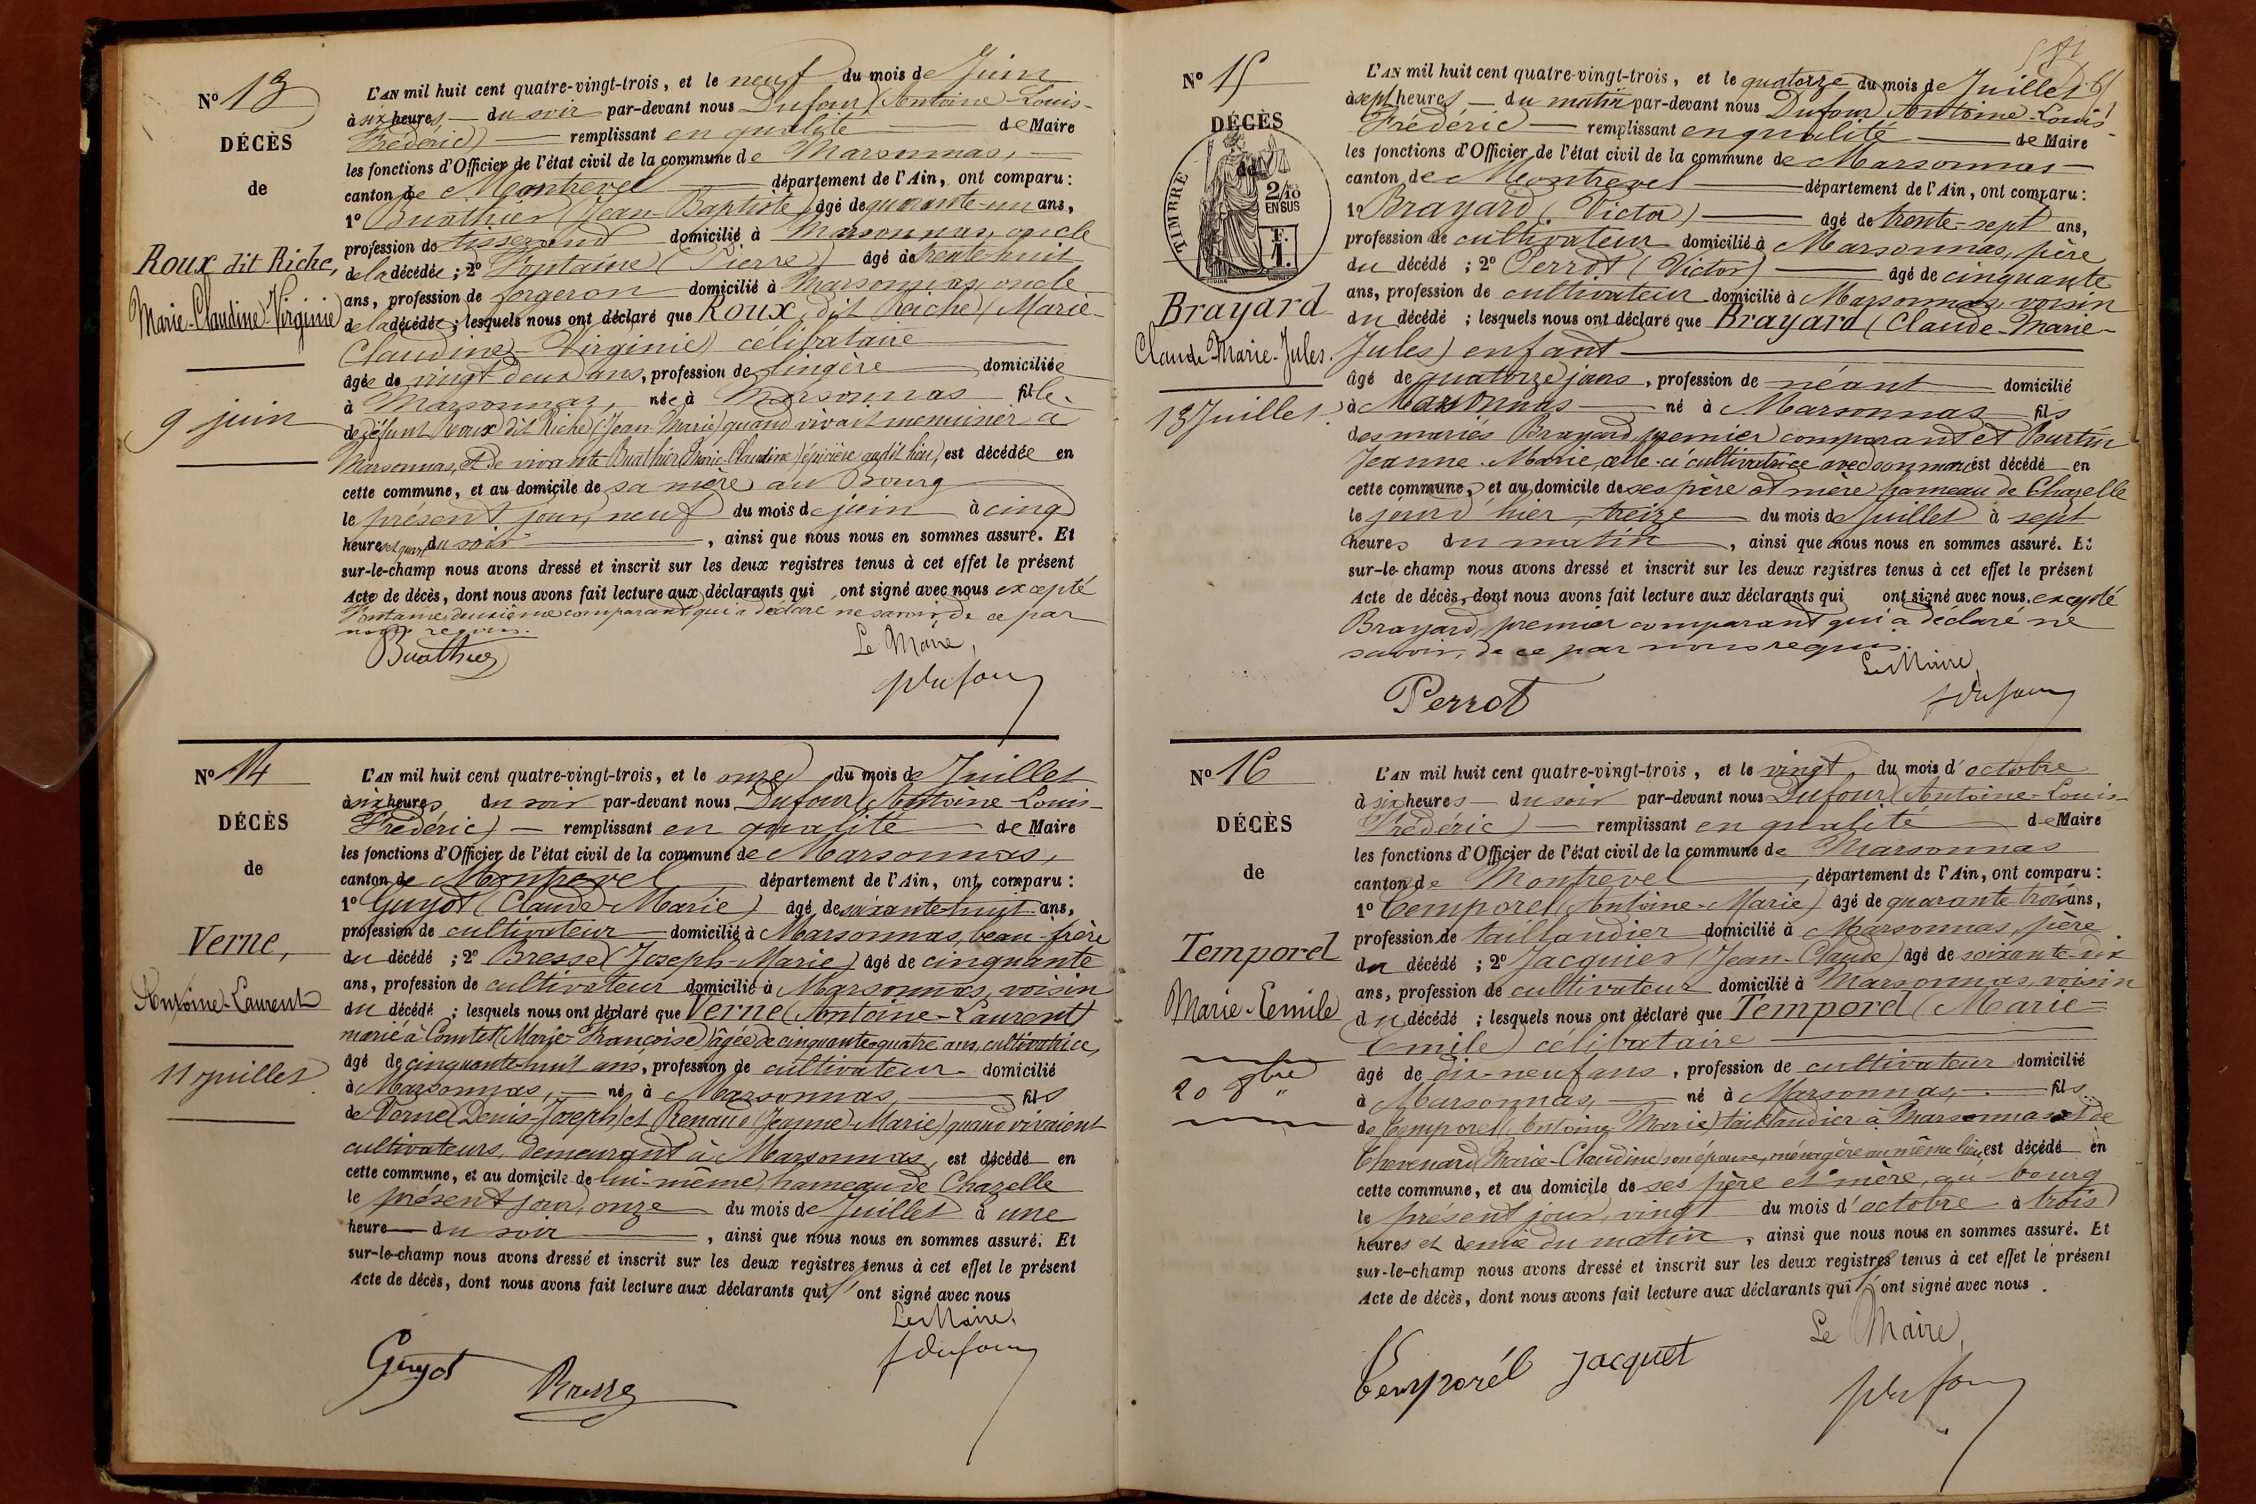 Nº 13
DÉCÈS
de
Roux dit Riche,
Marie-Claudine-Virginie
9 juin
L'AN mil huit cent quatre-vingt-trois, et le neuf du mois de Juin
à six heures du soir par-devant nous Dufour (Antoine-Louis-
Frédéric) remplissant en qualité de Maire
les fonctions d'Officier de l'état civil de la commune de Marsonnas,
canton de Montrevel département de l'Ain, ont comparu :
1º Buathier (Jean-Baptiste) âgé de quarante-un ans,
profession de tisserand domicilié à Marsonnas, oncle
de la décédée ; 2º Fontaine (Pierre) âgé de trente-huit
ans, profession de forgeron domicilié à Marsonnas, oncle
de la décédée ; lesquels nous ont déclaré que Roux dit Riche (Marie-
Claudine-Virginie) célibataire
âgée de vingt deux ans, profession de lingère domiciliée
à Marsonnas, née à Marsonnas fille
de défunt Roux dit Riche (Jean-Marie) quand vivait menuisier à
Marsonnas, et de vivante Buathier (Marie-Claudine) épicière audit lieu, est décédée en
cette commune, et au domicile de sa mère au Bourg
le présent jour, neuf du mois de juin à cinq
heures et quart du soir, ainsi que nous nous en sommes assuré. Et
sur-le-champ nous avons dressé et inscrit sur les deux registres tenus à cet effet le présent
Acte de décès, dont nous avons fait lecture aux déclarants qui ont signé avec nous excepté
Fontaine, deuxième comparant qui a déclaré ne savoir, de ce par
nous requis.
Buathier
Le Maire,
f Dufour
Nº 14
DÉCÈS
de
Verne,
Antoine-Laurent
11 juillet
L'AN mil huit cent quatre-vingt-trois, et le onze du mois de Juillet
à six heures du soir par-devant nous Dufour (Antoine-Louis-
Frédéric) remplissant en qualité de Maire
les fonctions d'Officier de l'état civil de la commune de Marsonnas,
canton de Montrevel département de l'Ain, ont comparu :
1º Guyot (Claude-Marie) âgé de soixante-huit ans,
profession de cultivateur domicilié à Marsonnas, beau-frère
du décédé ; 2º Bresse (Joseph-Marie) âgé de cinquante
ans, profession de cultivateur domicilié à Marsonnas, voisin
du décédé ; lesquels nous ont déclaré que Verne (Antoine-Laurent)
marié à Comtet (Marie-Françoise) âgée de cinquante-quatre ans, cultivatrice,
âgé de cinquante-huit ans, profession de cultivateur domicilié
à Marsonnas, né à Marsonnas, fils
de Verne (Denis-Joseph) et Renaud (Jeanne-Marie) quand vivaient
cultivateurs, demeurant à Marsonnas, est décédé en
cette commune, et au domicile de lui-même, hameau de Chazelle
le présent jour, onze du mois de Juillet à une
heure du soir, ainsi que nous nous en sommes assuré. Et
sur-le-champ nous avons dressé et inscrit sur les deux registres tenus à cet effet le présent
Acte de décès, dont nous avons fait lecture aux déclarants qui ont signé avec nous
Le Maire,
Guyot
Bresse
f Dufour
Nº 15
DÉCÈS
de
TIMBRE
2/10
EN SUS
Brayard
Claude-Marie-Jules.
13 Juillet.
L'AN mil huit cent quatre-vingt-trois, et le quatorze du mois de Juillet
à sept heures du matin par-devant nous Dufour (Antoine-Louis-
Frédéric remplissant en qualité de Maire
les fonctions d'Officier de l'état civil de la commune de Marsonnas
canton de Montrevel département de l'Ain, ont comparu :
1º Brayard (Victor) âgé de trente-sept ans,
profession de cultivateur domicilié à Marsonnas, père
du décédé ; 2º Perrot (Victor) âgé de cinquante
ans, profession de cultivateur domicilié à Marsonnas, voisin
du décédé ; lesquels nous ont déclaré que Brayard (Claude-Marie-
Jules) enfant
âgé de quatorze jours, profession de néant domicilié
à Marsonnas né à Marsonnas fils
des mariés Brayard, premier comparant et Burtin
Jeanne-Marie, celle-ci cultivatrice avec son mari est décédé en
cette commune, et au domicile de ses père et mère hameau de Chazelle
le jour d'hier, treize du mois de Juillet à sept
heures du matin, ainsi que nous nous en sommes assuré. Et
sur-le-champ nous avons dressé et inscrit sur les deux registres tenus à cet effet le présent
Acte de décès, dont nous avons fait lecture aux déclarants qui ont signé avec nous, excepté
Brayard, premier comparant qui a déclaré ne
savoir, de ce par nous requis.
Le Maire,
Perrot
f Dufour
Nº 16
DÉCÈS
de
Temporel
Marie-Emile
20 8bre
L'AN mil huit cent quatre-vingt-trois, et le vingt du mois d'octobre
à six heures du soir par-devant nous Dufour (Antoine-Louis-
Frédéric) remplissant en qualité de Maire
les fonctions d'Officier de l'état civil de la commune de Marsonnas
canton de Montrevel, département de l'Ain, ont comparu :
1º Temporel (Antoine-Marie) âgé de quarante-trois ans,
profession de taillandier domicilié à Marsonnas, père
du décédé ; 2º Jacquier (Jean-Claude) âgé de soixante-dix
ans, profession de cultivateur domicilié à Marsonnas, voisin
du décédé ; lesquels nous ont déclaré que Temporel (Marie=
Emile) célibataire
âgé de dix-neuf ans, profession de cultivateur domicilié
à Marsonnas, né à Marsonnas, fils
de Temporel (Antoine-Marie) taillandier à Marsonnas et de
Thevenard (Marie-Claudine) son épouse, ménagère au même lieu est décédé en
cette commune, et au domicile de ses père et mère, au bourg
le présent jour, vingt du mois d'octobre à trois
heures et demie du matin, ainsi que nous nous en sommes assuré. Et
sur-le-champ nous avons dressé et inscrit sur les deux registres tenus à cet effet le présent
Acte de décès, dont nous avons fait lecture aux déclarants qui ont signé avec nous.
Le Maire,
Temporél Jacquet
f Dufour